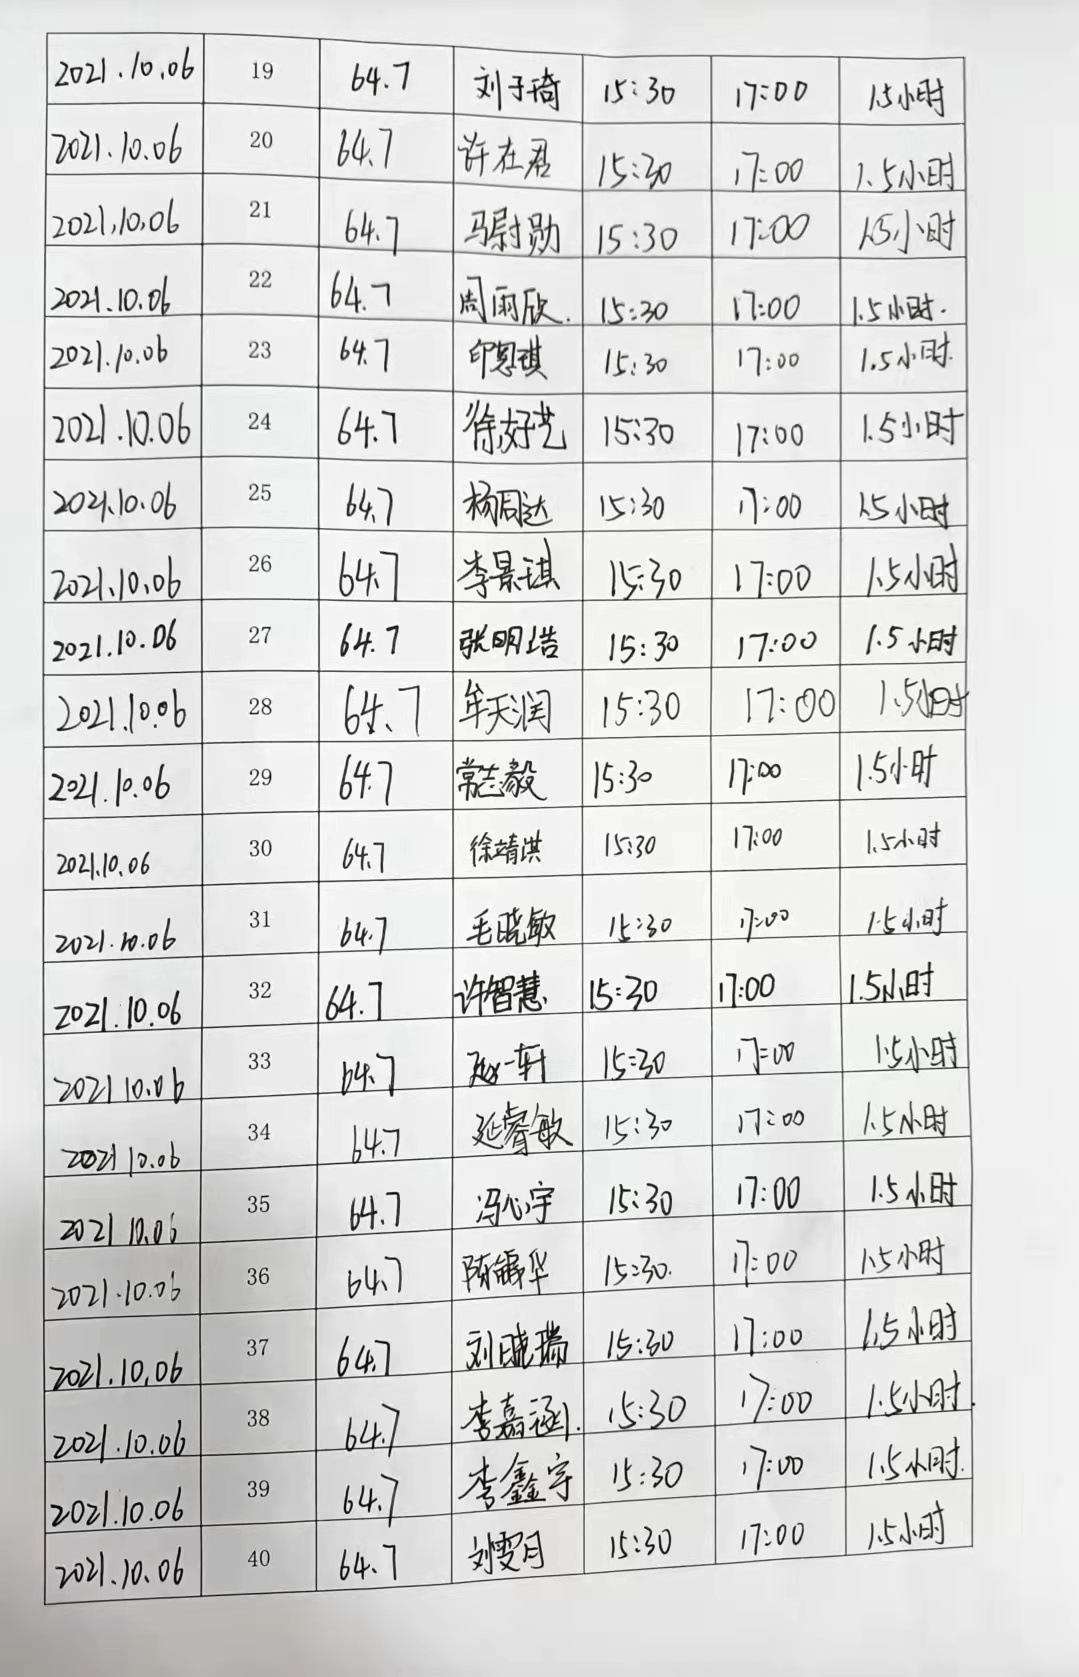 2021.10.06 19 64.7 刘子琦 15:30 17:00 1.5小时
2021.10.06 20 64.7 许在君 15:30 17:00 1.5小时
2021.10.06 21 64.7 马尉勋 15:30 17:00 1.5小时
2021.10.06 22 64.7 周雨欣. 15:30 17:00 1.5小时.
2021.10.06 23 64.7 印恩琪 15:30 17:00 1.5小时.
2021.10.06 24 64.7 徐好艺 15:30 17:00 1.5小时
2021.10.06 25 64.7 杨周达 15:30 17:00 1.5小时
2021.10.06 26 64.7 李景琪 15:30 17:00 1.5小时
2021.10.06 27 64.7 张明浩 15:30 17:00 1.5小时
2021.10.06 28 64.7 牟天润 15:30 17:00 1.5小时
2021.10.06 29 64.7 常志毅 15:30 17:00 1.5小时
2021.10.06 30 64.7 徐靖淇 15:30 17:00 1.5小时
2021.10.06 31 64.7 毛晓敏 15:30 17:00 1.5小时
2021.10.06 32 64.7 许智慧 15:30 17:00 1.5小时
2021 10.06 33 64.7 赵一轩 15:30 17:00 1.5小时
2021 10.06 34 64.7 延睿敏 15:30 17:00 1.5小时
2021 10.06 35 64.7 冯心宇 15:30 17:00 1.5小时
2021.10.06 36 64.7 陈华 15:30. 17:00 1.5小时
2021.10.06 37 64.7 刘晓瑞 15:30 17:00 1.5小时
2021.10.06 38 64.7 李嘉涵. 15:30 17:00 1.5小时.
2021.10.06 39 64.7 李鑫宇 15:30 17:00 1.5小时.
2021.10.06 40 64.7 刘雯月 15:30 17:00 1.5小时